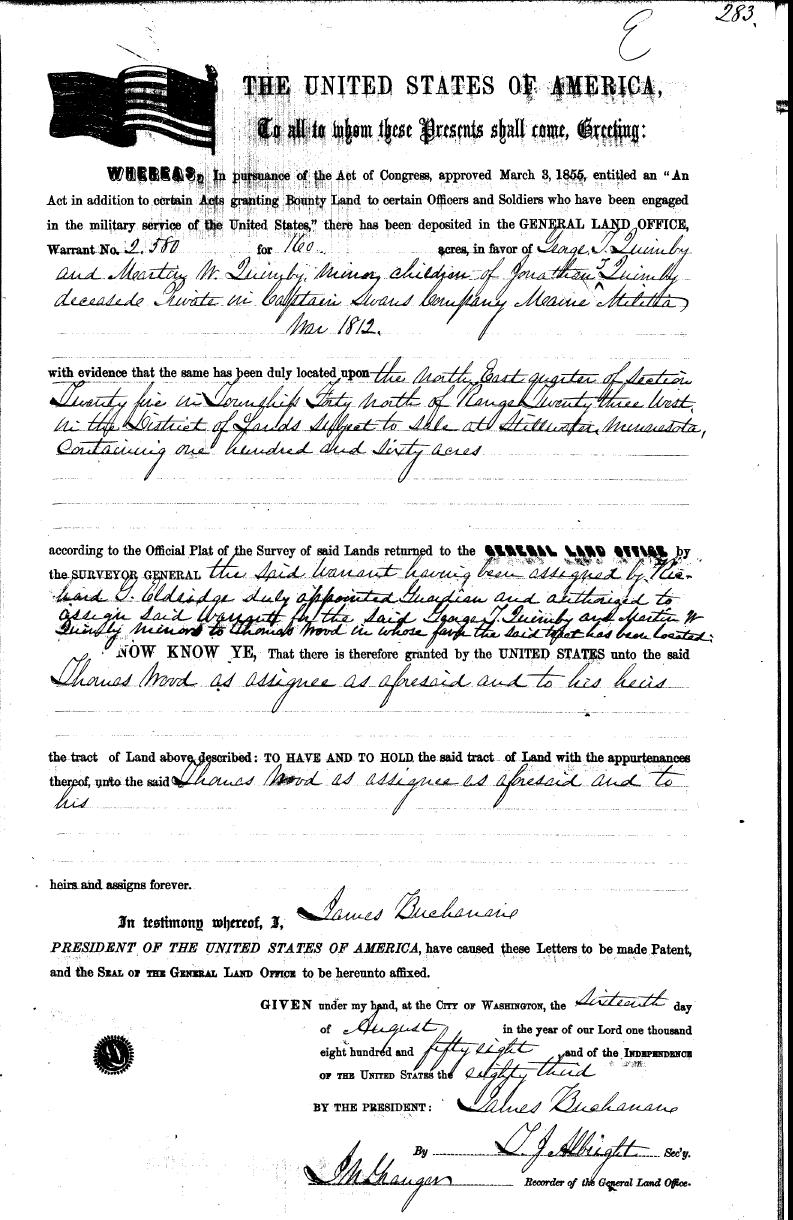 283.
E
THE UNITED STATES OF AMERICA,
To all to whom these Presents shall come, Greeting:
WHEREAS, In pursuance of the Act of Congress, approved March 3, 1855, entitled an “An
Act in addition to certain Acts granting Bounty Land to certain Officers and Soldiers who have been engaged
in the military service of the United States,” there has been deposited in the GENERAL LAND OFFICE,
Warrant No. 2.580 for 160 acres, in favor of George T. Quimby
and Martin W. Quimby, minor children of Jonathan T Quimby
deceased Private in Captain Swans Company Maine Militia
War 1812.
with evidence that the same has been duly located upon the North East quarter of Section
Twenty five in Township Forty North of Range Twenty three West
in the District of Lands subject to sale at Stillwater, Minnesota,
Containing one hundred and sixty acres
according to the Official Plat of the Survey of said Lands returned to the GENERAL LAND OFFICE by
the SURVEYOR GENERAL the said Warrant having been assigned by Ric-
hard G. Eldridge duly appointed Guardian and authorized to
assign said Warrant for the said George T. Quimby and Martin W
Quimby minors to Thomas Wood in whose favor the said tract has been located:
NOW KNOW YE, That there is therefore granted by the UNITED STATES unto the said
Thomas Wood as assignee as aforesaid and to his heirs
the tract of Land above described: TO HAVE AND TO HOLD the said tract of Land with the appurtenances
thereof, unto the said Thomas Wood as assignee as aforesaid and to
his
heirs and assigns forever.
In testimony whereof, I, James Buchanan
PRESIDENT OF THE UNITED STATES OF AMERICA, have caused these Letters to be made Patent,
and the SEAL OF THE GENERAL LAND OFFICE to be hereunto affixed.
GIVEN under my hand, at the CITY OF WASHINGTON, the Sixteenth day
of August in the year of our Lord one thousand
eight hundred and fifty eight, and of the INDEPENDENCE
OF THE UNITED STATES the eighty third
BY THE PRESIDENT: James Buchanan
By T. J. Albright Sec'y.
J N Granger Recorder of the General Land Office.